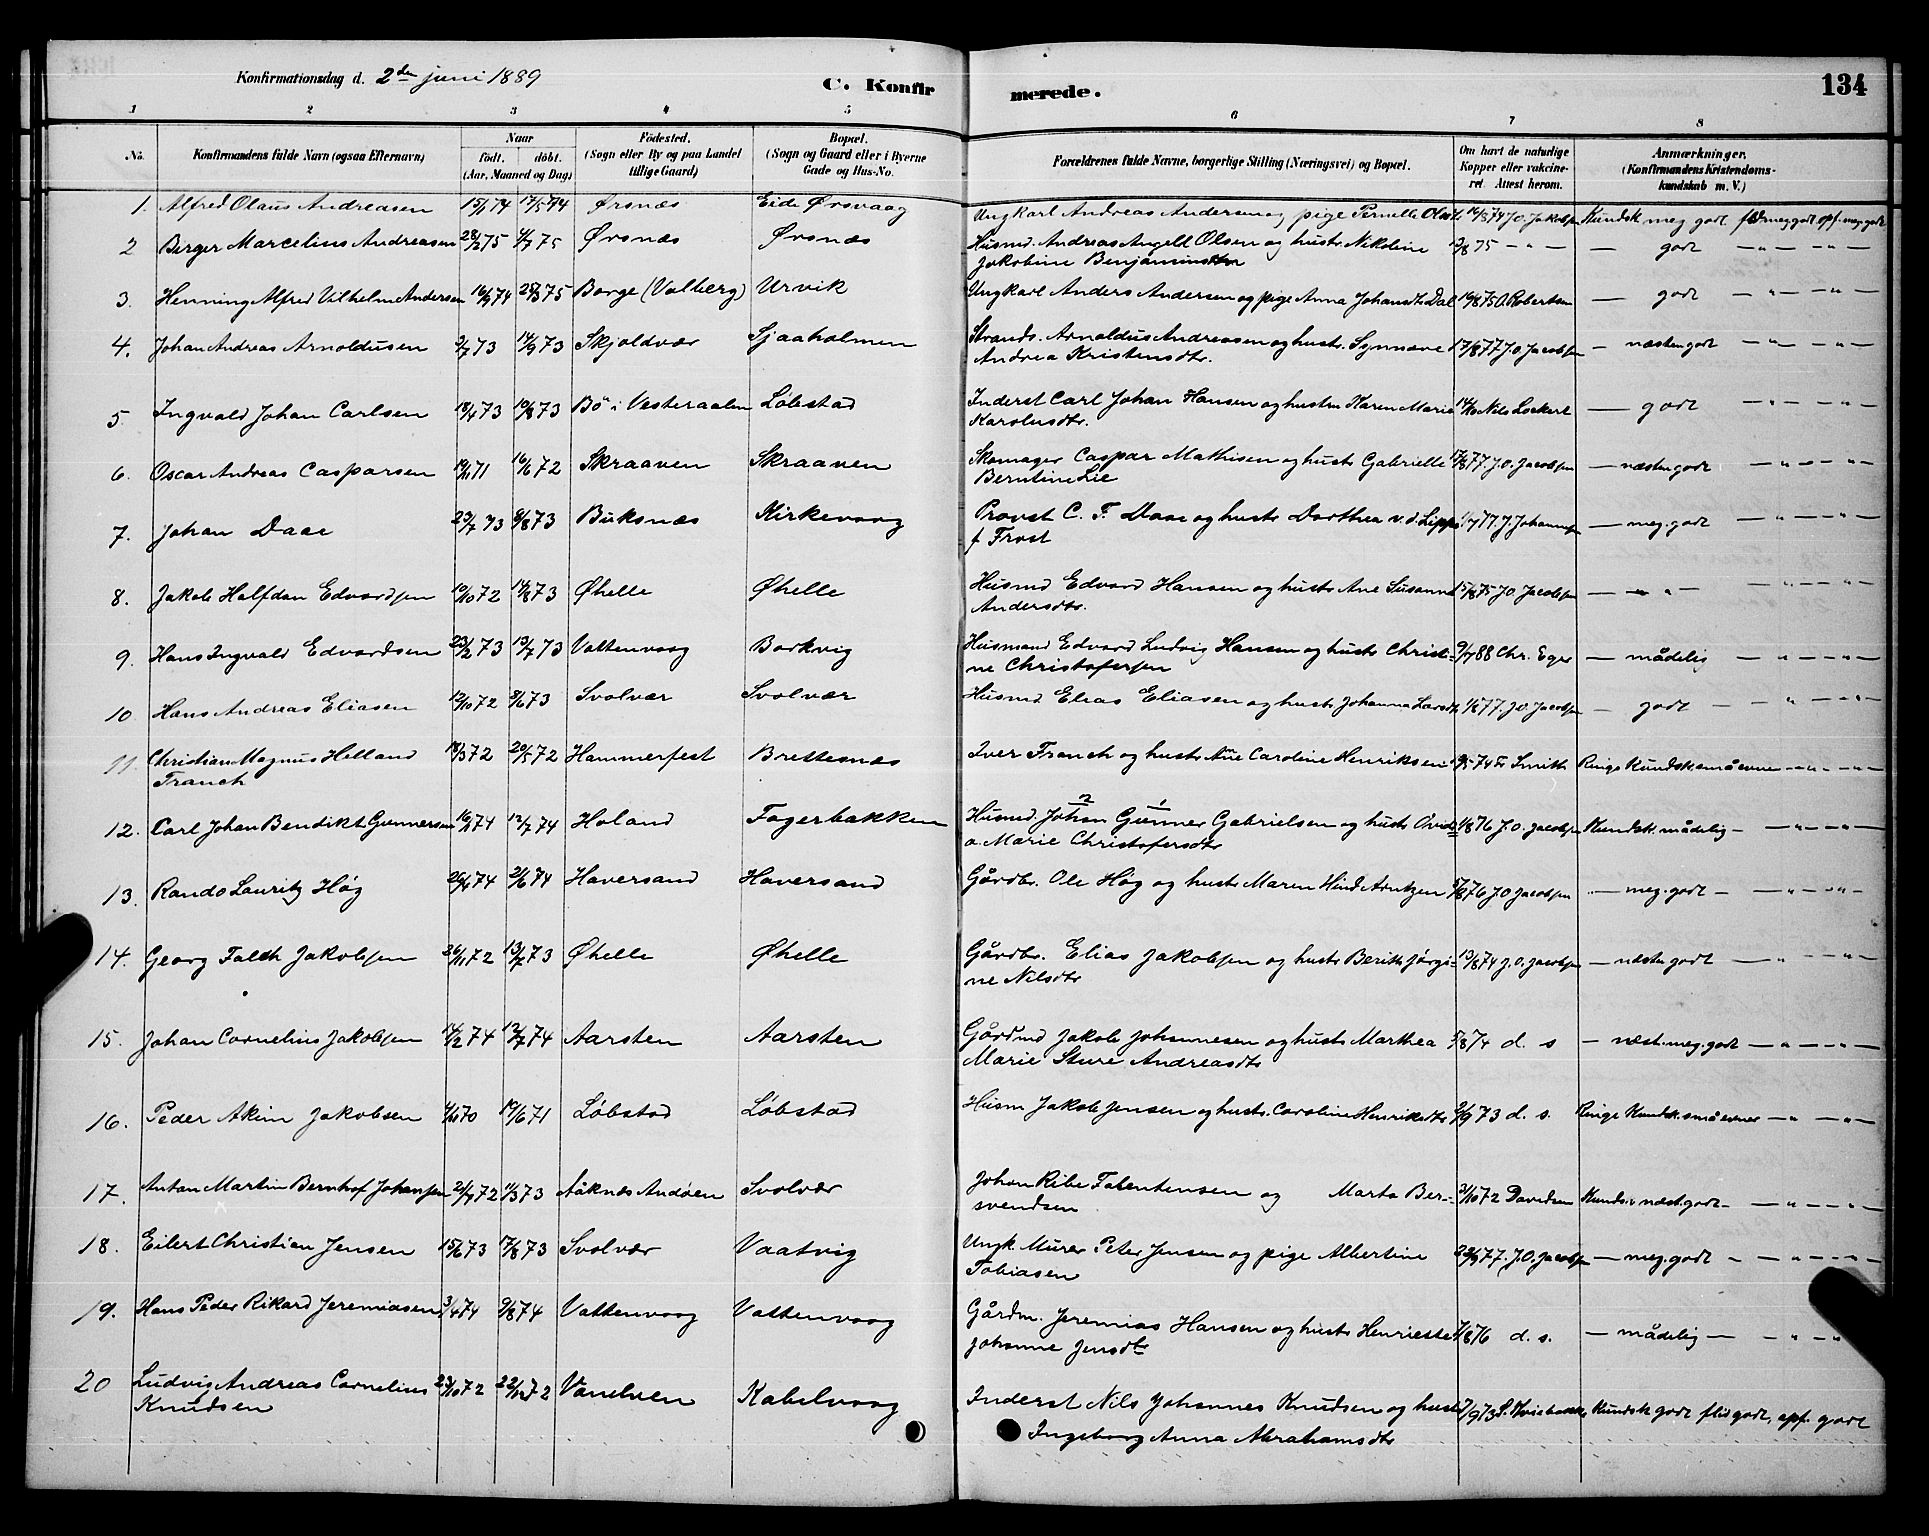 Konfirmationsdag d. 2den juni 1889
C. Konfirmerede.
134
1 2 3 4 5 6 7 8
No.
Konfirmandens fulde Navn (ogsaa Efternavn)
Naar
födt. döbt.
(Aar, Maaned og Dag)
Födested.
(Sogn eller By og paa Landet
tillige Gaard)
Bopæl.
(Sogn og Gaard eller i Byerne
Gade og Hus-No.
Forældrenes fulde Navne, borgerlige Stilling (Næringsvei) og Bopæl.
Om havt de naturlige
Kopper eller vakcine-
ret. Attest herom.
Anmærkninger.
(Konfirmandens Kristendoms-
kundskab m. V.)
1. Alfred Olaus Andreasen 15/1 74 17/5 74 Ørsnæs Eide Ørsvaag Ungkarl Andreas Andersen og pige Pernelle 14/8 74 J.O. Jakobsen Kundsk meg godt flid meg godt opf. meg godt
2 Berger Marcelius Andreasen 28/2 75 4/7 75 Ørsnæs Ørsnæs Husmd. Andreas Angell Olsen og hustr Nikoline 13/8 75 — " — — godt — " — " —
Jakobine Benjaminsdtr
3. Henning Alfred Vilhelm Andersen 16/9 74 29/3 75 Borge (Valberg) Urvik Ungkarl Anders Andersen og pige Anna Johansdtr Dal 16/8 75 O. Robertsen — godt — " — " —
4. Johan Andreas Arnoldusen 2/7 73 14/9 73 Skjoldvær Sjaaholmen Strands. Arnoldus Andreasen og hustr. Synnøve 17/8 77 J.O. Jacobsen — næsten godt — " — " —
Andrea Kristensdtr.
5. Ingvald Johan Carlsen 18/4 73 10/8 73 Bö i Vesteraalen Löbstad Inderst Carl Johan Hansen og hustru Karen Marie Nils Lockert — godt — " — " —
Karolusdtr.
6. Oscar Andreas Casparsen 19/11 71 16/6 72 Skraaven Skraaven Skomager Caspar Mathisen og hustr Gabrielle 17/8 77 J.O. Jacobsen — næsten godt — " — " —
Berntine Lie
7. Johan Daae 23/7 73 8/8 73 Buksnæs Kirkevaag Provst C. F. Daae og hustr Dorthea v.d. Lippe 1/7 77. J. Johannesen — meg. godt — " — " —
f Frost
8. Jakob Halfdan Edvardsen 19/10 72 14/8 73 Øhelle Øhelle Husmd Edvard Hansen og hustr Ane Susanna 15/8 75 J.O. Jacobsen — " — — " — " —
Andersdtr.
9. Hans Ingvald Edvardsen 23/2 73 13/7 73 Vattenvaag Borkvig Husmand Edvard Ludvig Hansen og hustr Christi- 9/7 88 Chr. Eger — mådelig — " — " —
ne Christofersen
10 Hans Andreas Eliasen 12/10 72 8/6 73 Svolvær Svolvær Husmd Elias Eliasen og hustr Johanna 1/8 77. J.O. Jacobsen — godt — " — " —
11. Christian Magnus Helland 18/3 72 20/5 72 Hammerfest Brettesnæs Iver Franch og hustr Ane Caroline Henriksen 74 Fr Smith Ringe Kundsk. små evner — " — " —
Franch
12. Carl Johan Bendikt Gunnersen 16/4 74 12/7 74 Holand Fagerbakken Husmd. Johan Gunner Gabrielsen og hustr 1/8 76 J.O. Jacobsen Kundsk. mådelig — — " — " —
a. Marie Christofersdtr
13. Rando Lauritz Høg 20/4 74 21/6 74 Haversand Haversand Gårdbr. Ole Høg og hustr Maren Hind Arntzen 5/8 76 J.O Jacobsen — meg. godt — — " — " —
14. Georg Falch Jakobsen 26/11 72 13/7 73 Øhelle Øhelle Gårdbr. Elias Jakobsen og hustr Berith Jörgi- 13/8 74 J.O. Jacobsen — næsten godt — " — " —
ne Nilsdtr
15. Johan Cornelius Jakobsen 14/2 74 12/7 74 Aarsten Aarsten Gårdmd Jakob Johannesen og hustr Marthea 5/8 74 d. s — næst. meg. godt — " — " —
Marie Sture Andreasdtr
16. Peder Akim Jakobsen 70 19/6 71 Löbstad Löbstad Husm Jakob Jensen og hustr. Caroline Henriksdtr 2/9 73 d. s. Ringe Kundsk. små evner — " — " —
17. Anton Martin Bernhof Johansen 21/7 72 11/3 73 Ååknæs Andøen Svolvær Johan Ribe Falentensen og Marta Ber- 3/10 72 Davidsen Kundsk. næst. godt — " — " —
svendsen
18. Eilert Christian Jensen 15/6 73 17/8 73 Svolvær Vaatvig Ungk. Murer Peter Jensen og pige Albertine 22/9 77. J.O. Jacobsen — meg. godt — " — " —
Tobiasen
19. Hans Peder Rikard Jeremiasen 3/4 74 9/8 74 Vattenvaag Vattenvaag Gårdm. Jeremias Hansen og hustr Henriette 7/8 76 d. s. — mådelig — — " — " —
Johanne Jensdtr
20 Ludvig Andreas Cornelius 23/10 72 22/12 72 Vanelven Kabelvaag Inderst Nils Johannes Knudsen og hustr 7/9 73 Kundsk godt flid godt, opf. godt
Knudsen Ingeborg Anna Abrahamsdtr